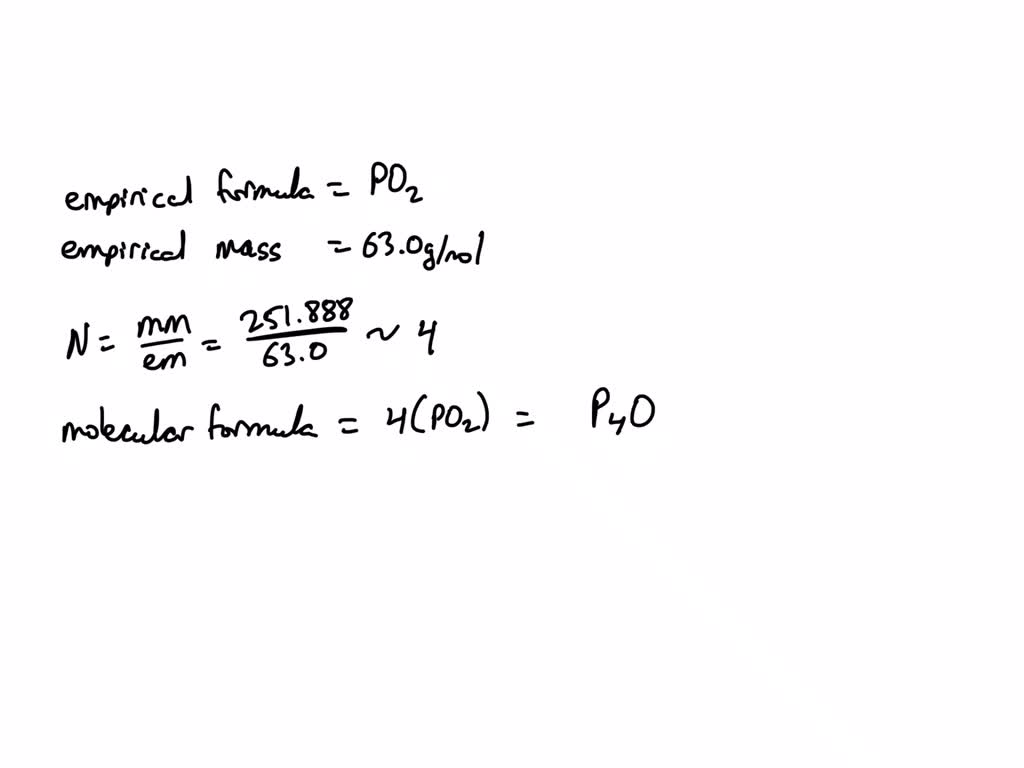 empirical formula = PO₂
empirical mass = 63.0g/mol
N = mm/em = 251.888/63.0 ~ 4
molecular formula = 4(PO₂) = P₄O